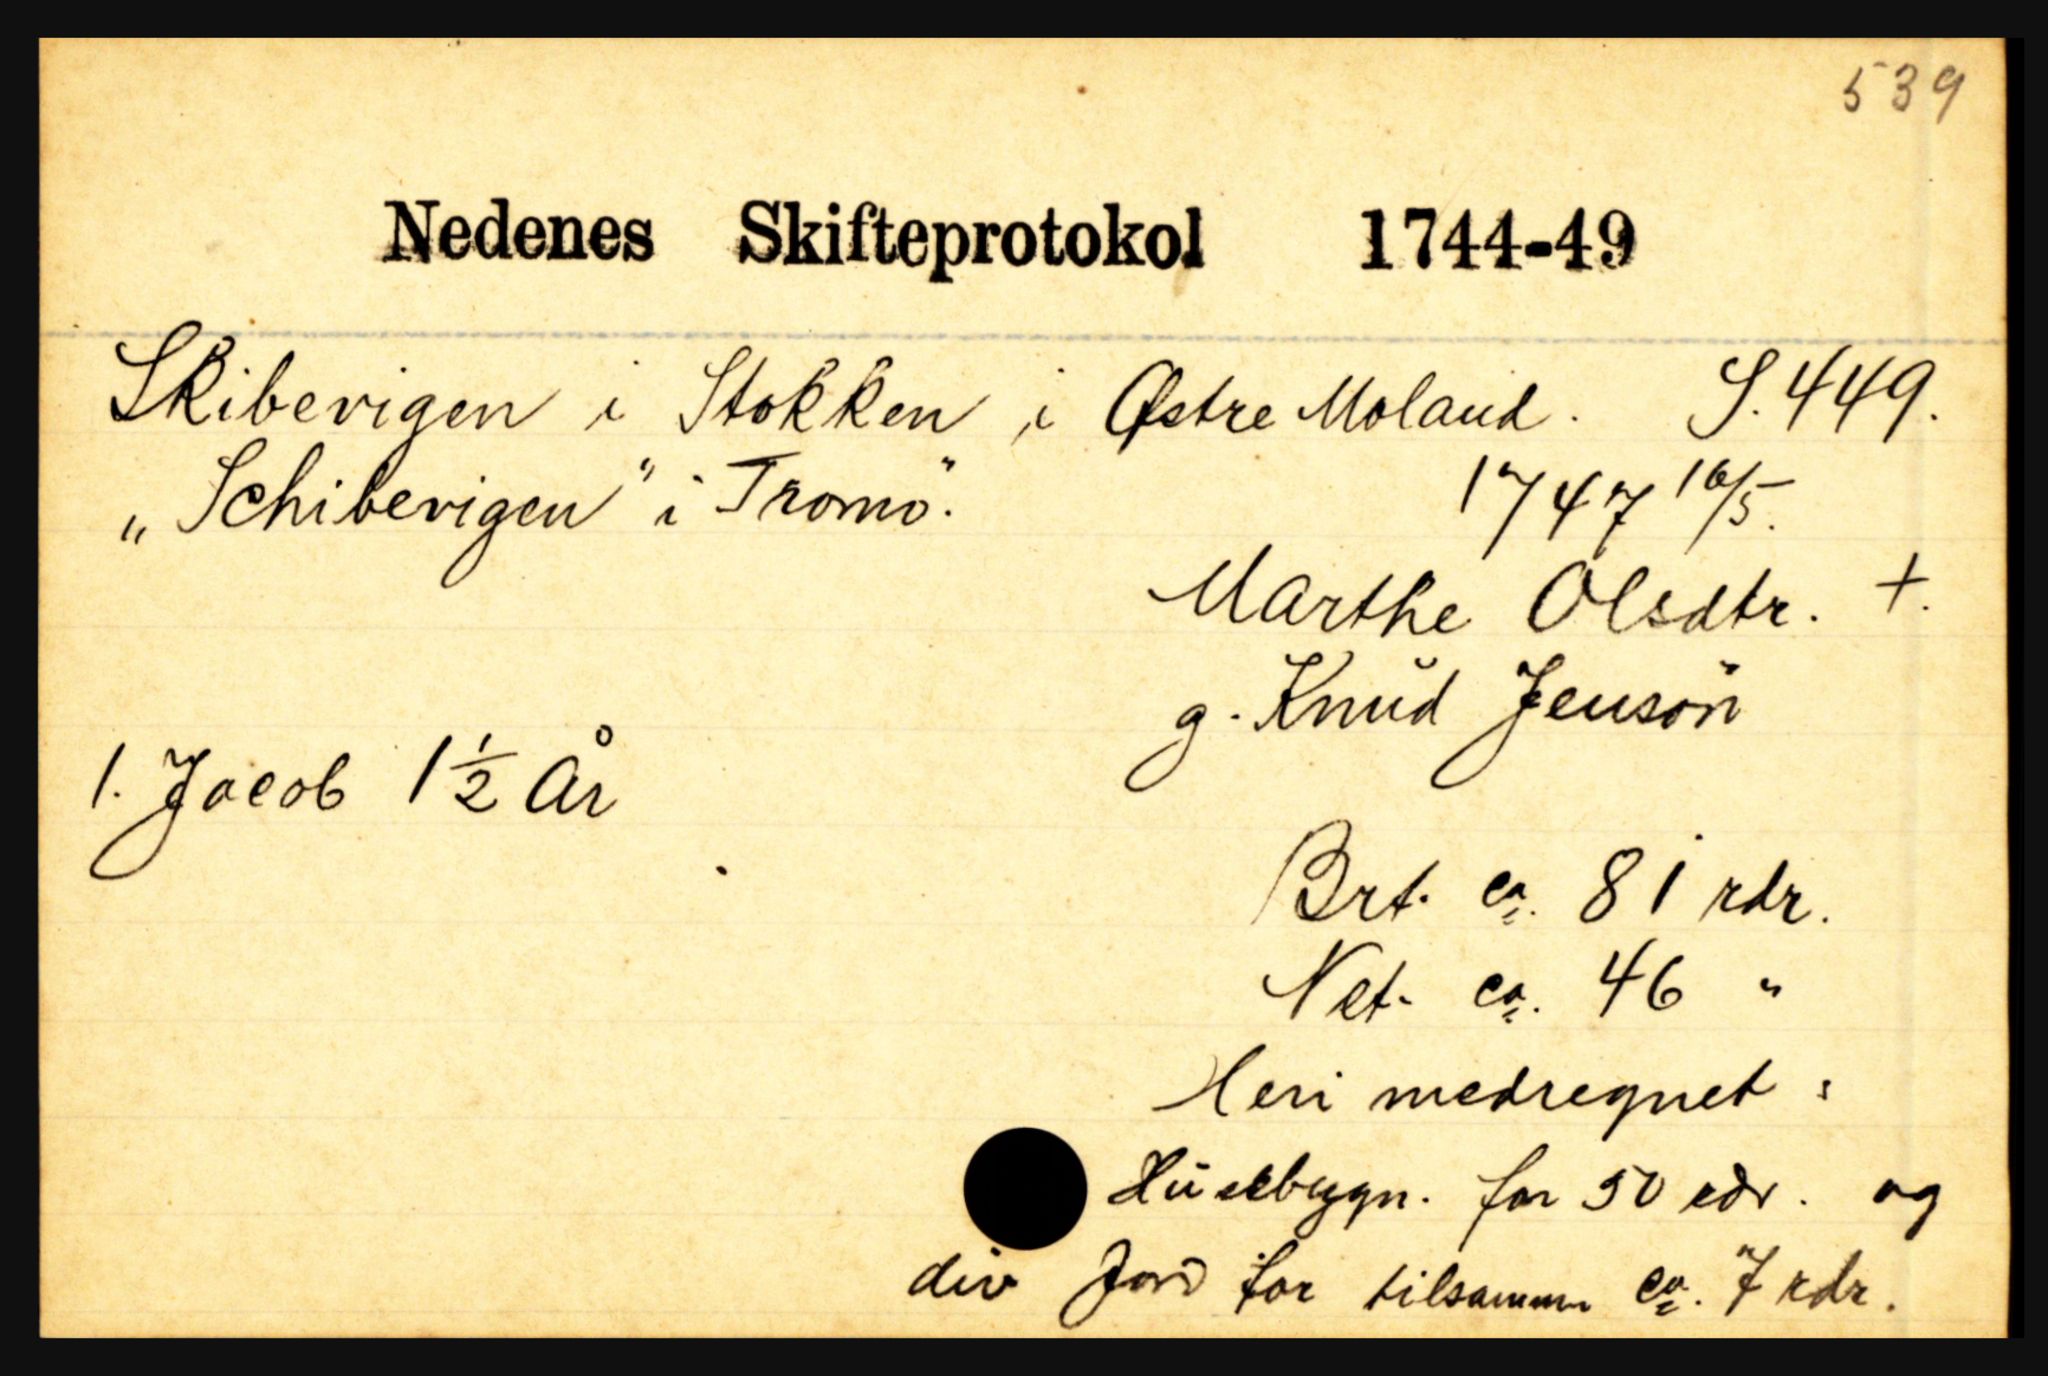 539
Nedenes Skifteprotokol 1744-49
Skibevigen i Stokken i Østre Moland. S. 449.
„Schibevigen" i Tromö. 1747 16/5.
Marthe Olsdtr. +.
g. Knud Jensön
1. Jacob 1 1/2 År
Brt. ca. 81 rdr.
Net. ca. 46 "
Heri medregnet:
Husebygn. for 50 rdr. og
div Jord for tilsammen ca. 7 rdr.